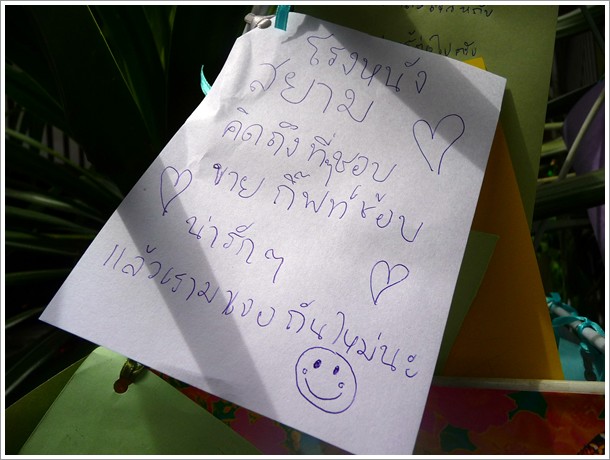 โรงหนัง
สยาม
คิดถึง ที่ๆชอบ
ขาย กิ๊ฟท์ช้อบ
น่ารักๆ
แล้วเรามาเจอ กันใหม่นะ